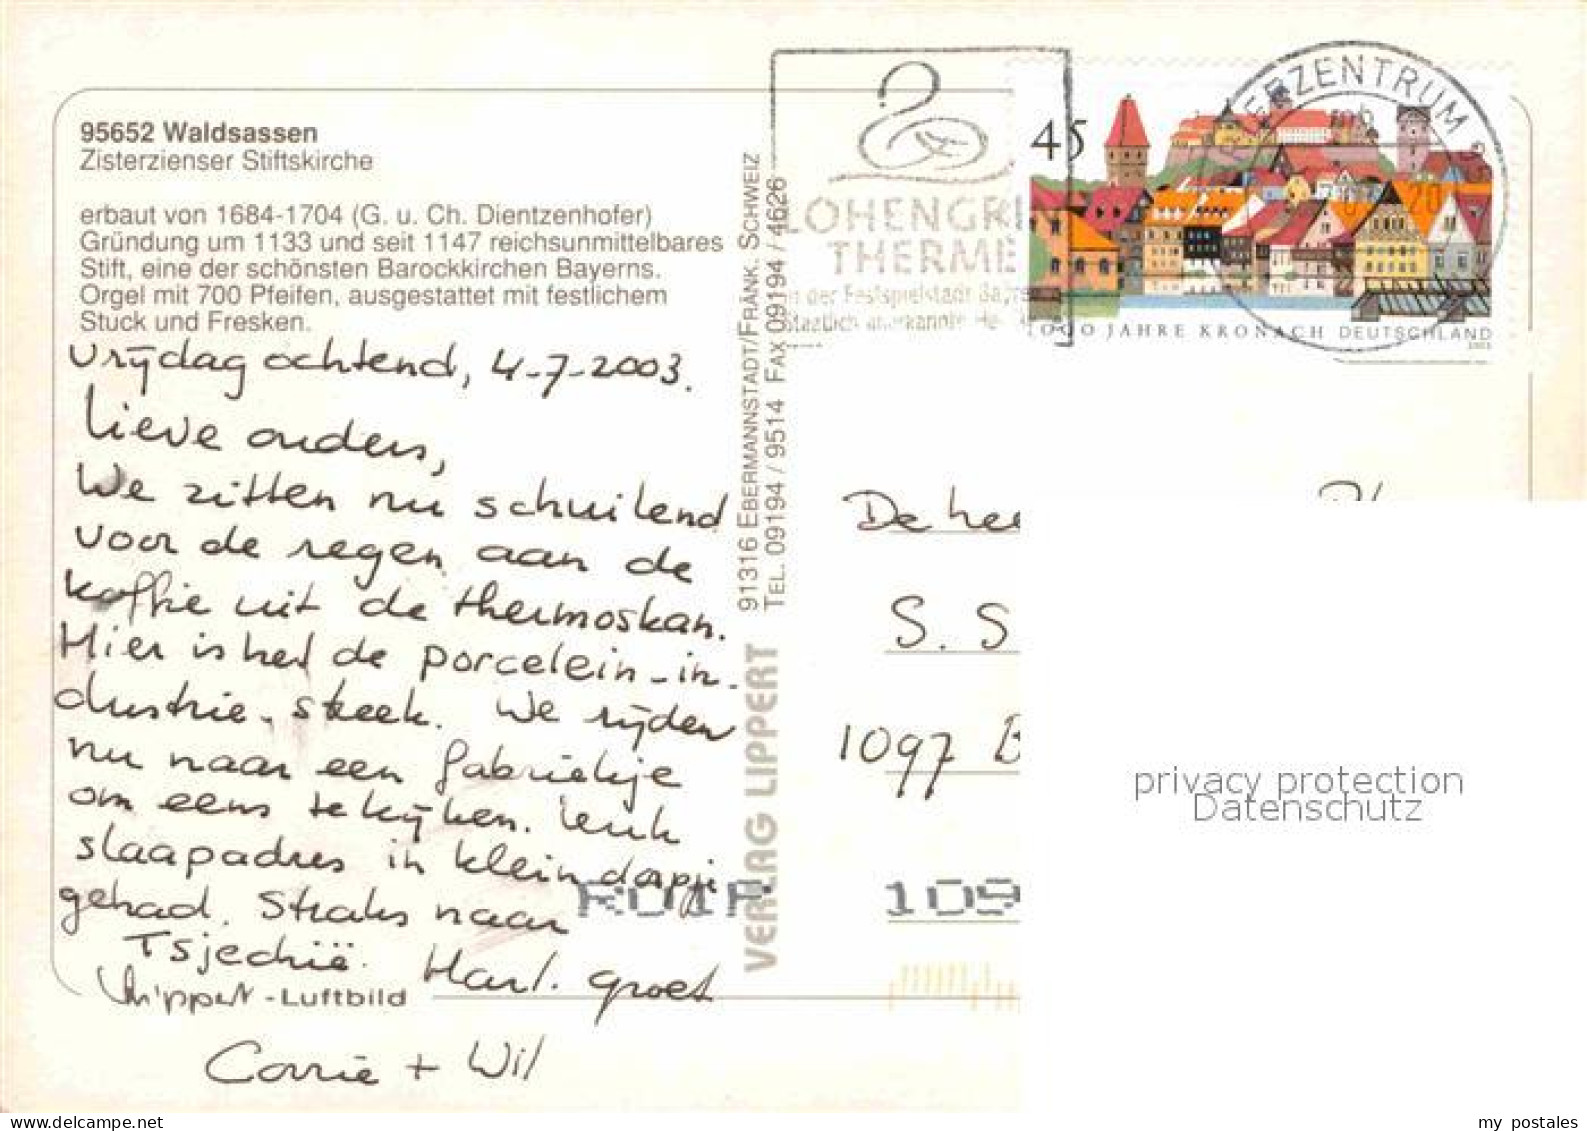 95652 Waldsassen
Zisterzienser Stiftskirche
erbaut von 1684-1704 (G. u. Ch. Dientzenhofer)
Gründung um 1133 und seit 1147 reichsunmittelbares
Stift, eine der schönsten Barockkirchen Bayerns.
Orgel mit 700 Pfeifen, ausgestattet mit festlichem
Stuck und Fresken.
vrijdag ochtend, 4-7-2003.
Lieve ouders,
We zitten nu schuilend
voor de regen aan de
koffie uit de thermoskan.
Hier is het de porcelein-in-
dustrie-streek. We rijden
nu naar een fabriekje
om eens te kijken. Leuk
slaapadres in klein dorpje
gehad. Straks naar
Tsjechië. Hart. groet
Lippert-Luftbild
Corrie + Wil
91316 EBERMANNSTADT/FRÄNK. SCHWEIZ
TEL. 09194 / 9514 FAX 09194 / 4626
VERLAG LIPPERT
LOHENGRIN
THERME
in der Festspielstadt Bayre
Staatlich anerkannte He
45
1000 JAHRE KRONACH DEUTSCHLAND
2003
ERZENTRUM
mb
20
De hee
S. S
1097 B
109
privacy protection
Datenschutz
my postales